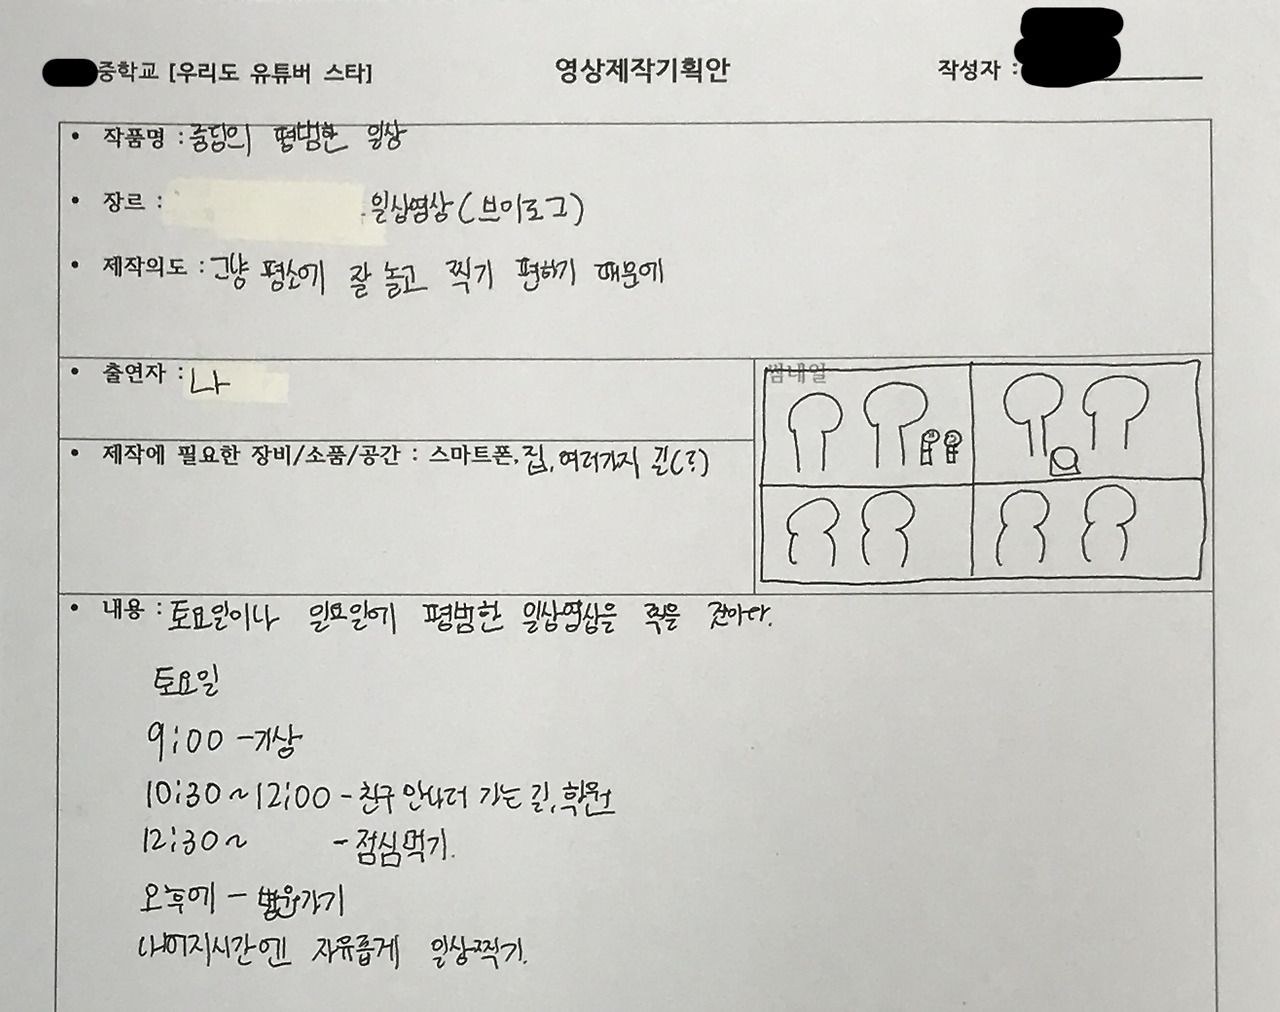 중학교 [우리도 유튜버 스타] 영상제작기획안 작성자 :
• 작품명 : 중딩의 평범한 일상
• 장르 : 일상영상(브이로그)
• 제작의도 : 그냥 평소에 잘 놀고 찍기 편하기 때문에
• 출연자 : 나
썸네일
• 제작에 필요한 장비/소품/공간 : 스마트폰, 집, 여러가지 길(?)
• 내용 : 토요일이나 일요일에 평범한 일상영상을 찍을 것이다.
토요일
9:00 - 기상
10:30 ~ 12:00 - 친구 만나러 가는 길, 학원
12:30 ~ - 점심먹기.
오후에 - 가기
나머지시간엔 자유롭게 일상찍기.